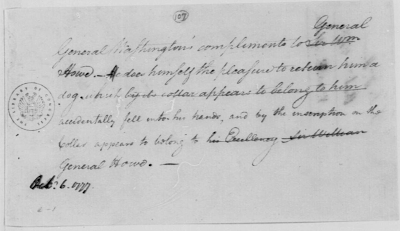 (07)
General
General Washington's compliments to Sir Wm.
Howe. — does himself the pleasure to return him a
dog, which by its collar appears to belong to him
accidentally fell into his hands, and by the inscription on the
Collar appears to belong to his Excellency Sir William
General Howe. —
Octr. 6. 1777.